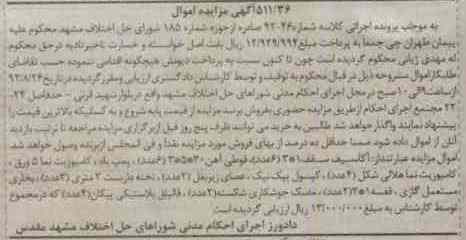 ۵۱۱/۳۶آگهی مزایده اموال
به موجب پرونده اجرائی کلاسه شماره ۹۲۰۴۶ صادره از حوزه شماره ۱۸۵ شورای حل اختلاف مشهد محکوم علیه
پیمان طهران چی جمعا به پرداخت مبلغ۱۲/۹۲۹/۹۹۲ ریال بابت اصل خواسته و خسارت تاخیرتادیه درحق محکوم
له مهدی ژیانی محکوم گردیده است چون تا کنون نسبت به پرداخت دیونش هیچگونه اقدامی ننموده حسب تقاضای
طلبکاراموال مشروحه ذیل در قبال محکوم به توقیف و توسط کارشناس دادگستری ارزیابی وملی گردیده درتاریخ ۹۳/۸/۲۶
ازساعت۹الی ۱۰ صبح درمحل اجرای احکام مدنی شوراهای حل اختلاف مشهد واقع دربلوار شهید قرنی – حدفاصل ۲۴-
۲۲ مجتمع اجرای احکام ازطریق مزایده حضوری بفروش برسد مزایده از قیمت پایه شروع و به کسانیکه بالاترین قیمت را
پیشنهاد نمایند واگذار خواهد شد طالبین به خرید می توانند ظرف پنج روز قبل ازبرگزاری مزایده مراجعه تا ترتیب بازدید
آنان از اموال داده شود ضمنا حداقل ده درصد از بهای فروش مورد مزایده نقدا و فی المجلس ازبرنده وصول خواهد شد.
اموال مزایده عبارتنداز: آکاسیف سقف۱*۲ (۶عدد)، قوطی آهن ۳۰*۳۰*۵ (۲عدد)، پمپ باد ، کامپوزیت نما ۵ ورق ،
کامپوزیت نما هلالی شکل (۴عدد)، کپسول پیک نیک ، عصای زیربغل (۲عدد)، تخته داربست ۲ متری (۳عدد)، بخاری
مستعمل گازی ، قفسه ۱*۲(۲عدد)، مشبک جوشکاری شکسته(۲عدد)، قالپاق پلاستیکی پیکان(۴عدد) که درمجموع
توسط کارشناس به مبلغ ۱۳/۰۰۰/۰۰۰ ریال ارزیابی گردیده است
دادورز اجرای احکام مدنی شوراهای حل اختلاف مشهد مقدس